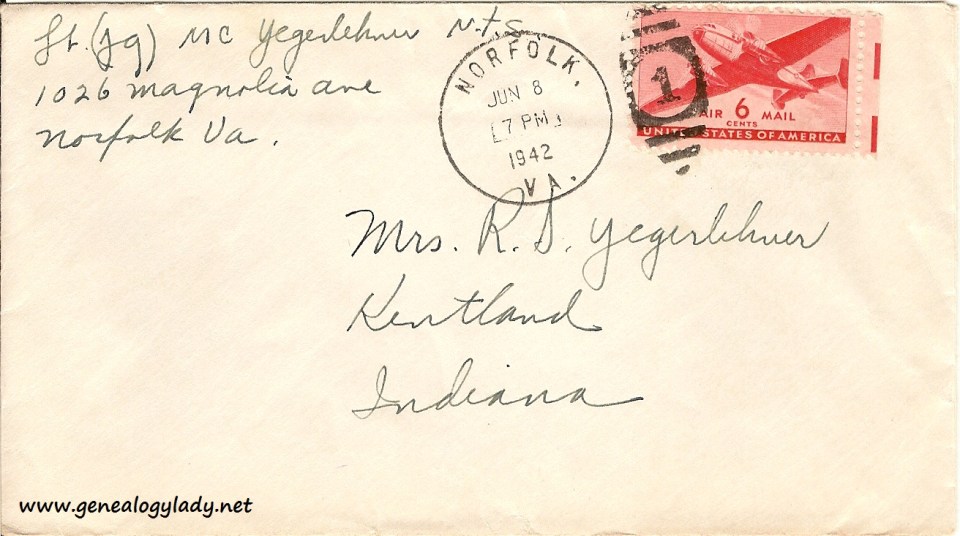 Lt. (Jg) MC Yegerlehner N.T.S.
1026 Magnolia ave
Norfolk Va.
NORFOLK,
JUN 8
7 PM
1942
VA.
1
AIR 6 MAIL
CENTS
UNITED STATES OF AMERICA
Mrs. R. D. Yegerlehner
Kentland
Indiana
www.genealogylady.net